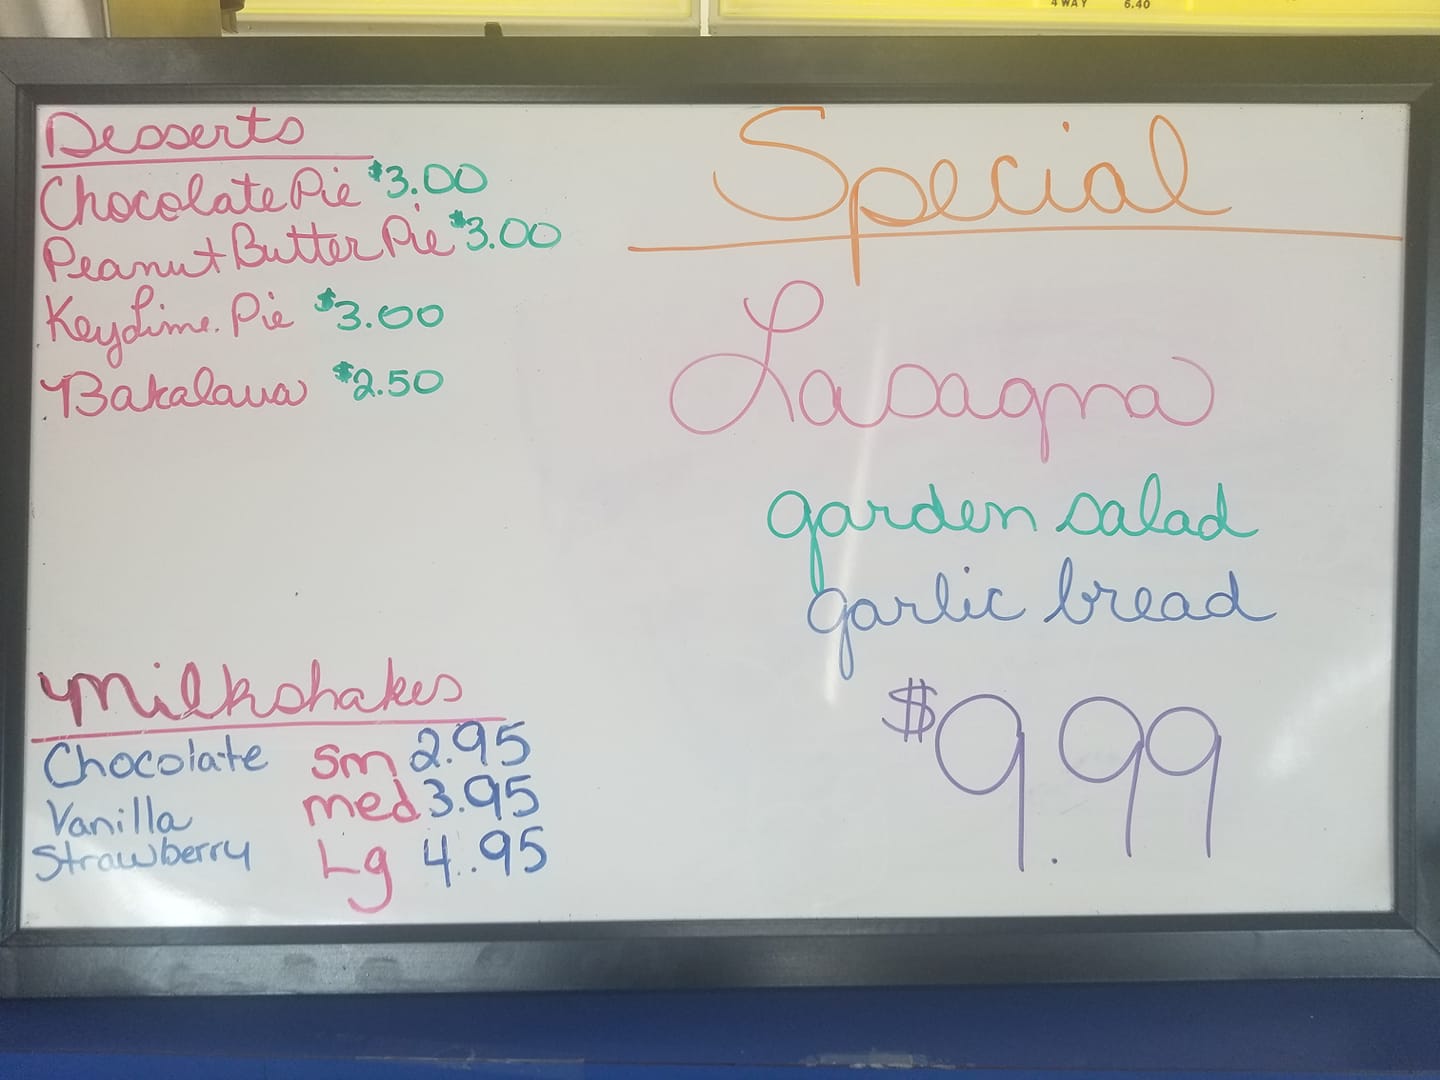 4 WAY 6.40
Desserts
Chocolate Pie $3.00
Peanut Butter Pie $3.00
Key Lime. Pie $3.00
Bakalava $2.50
Milkshakes
Chocolate sm 2.95
Vanilla med 3.95
Strawberry Lg 4.95
Special
Lasagna
garden salad
garlic bread
$9.99